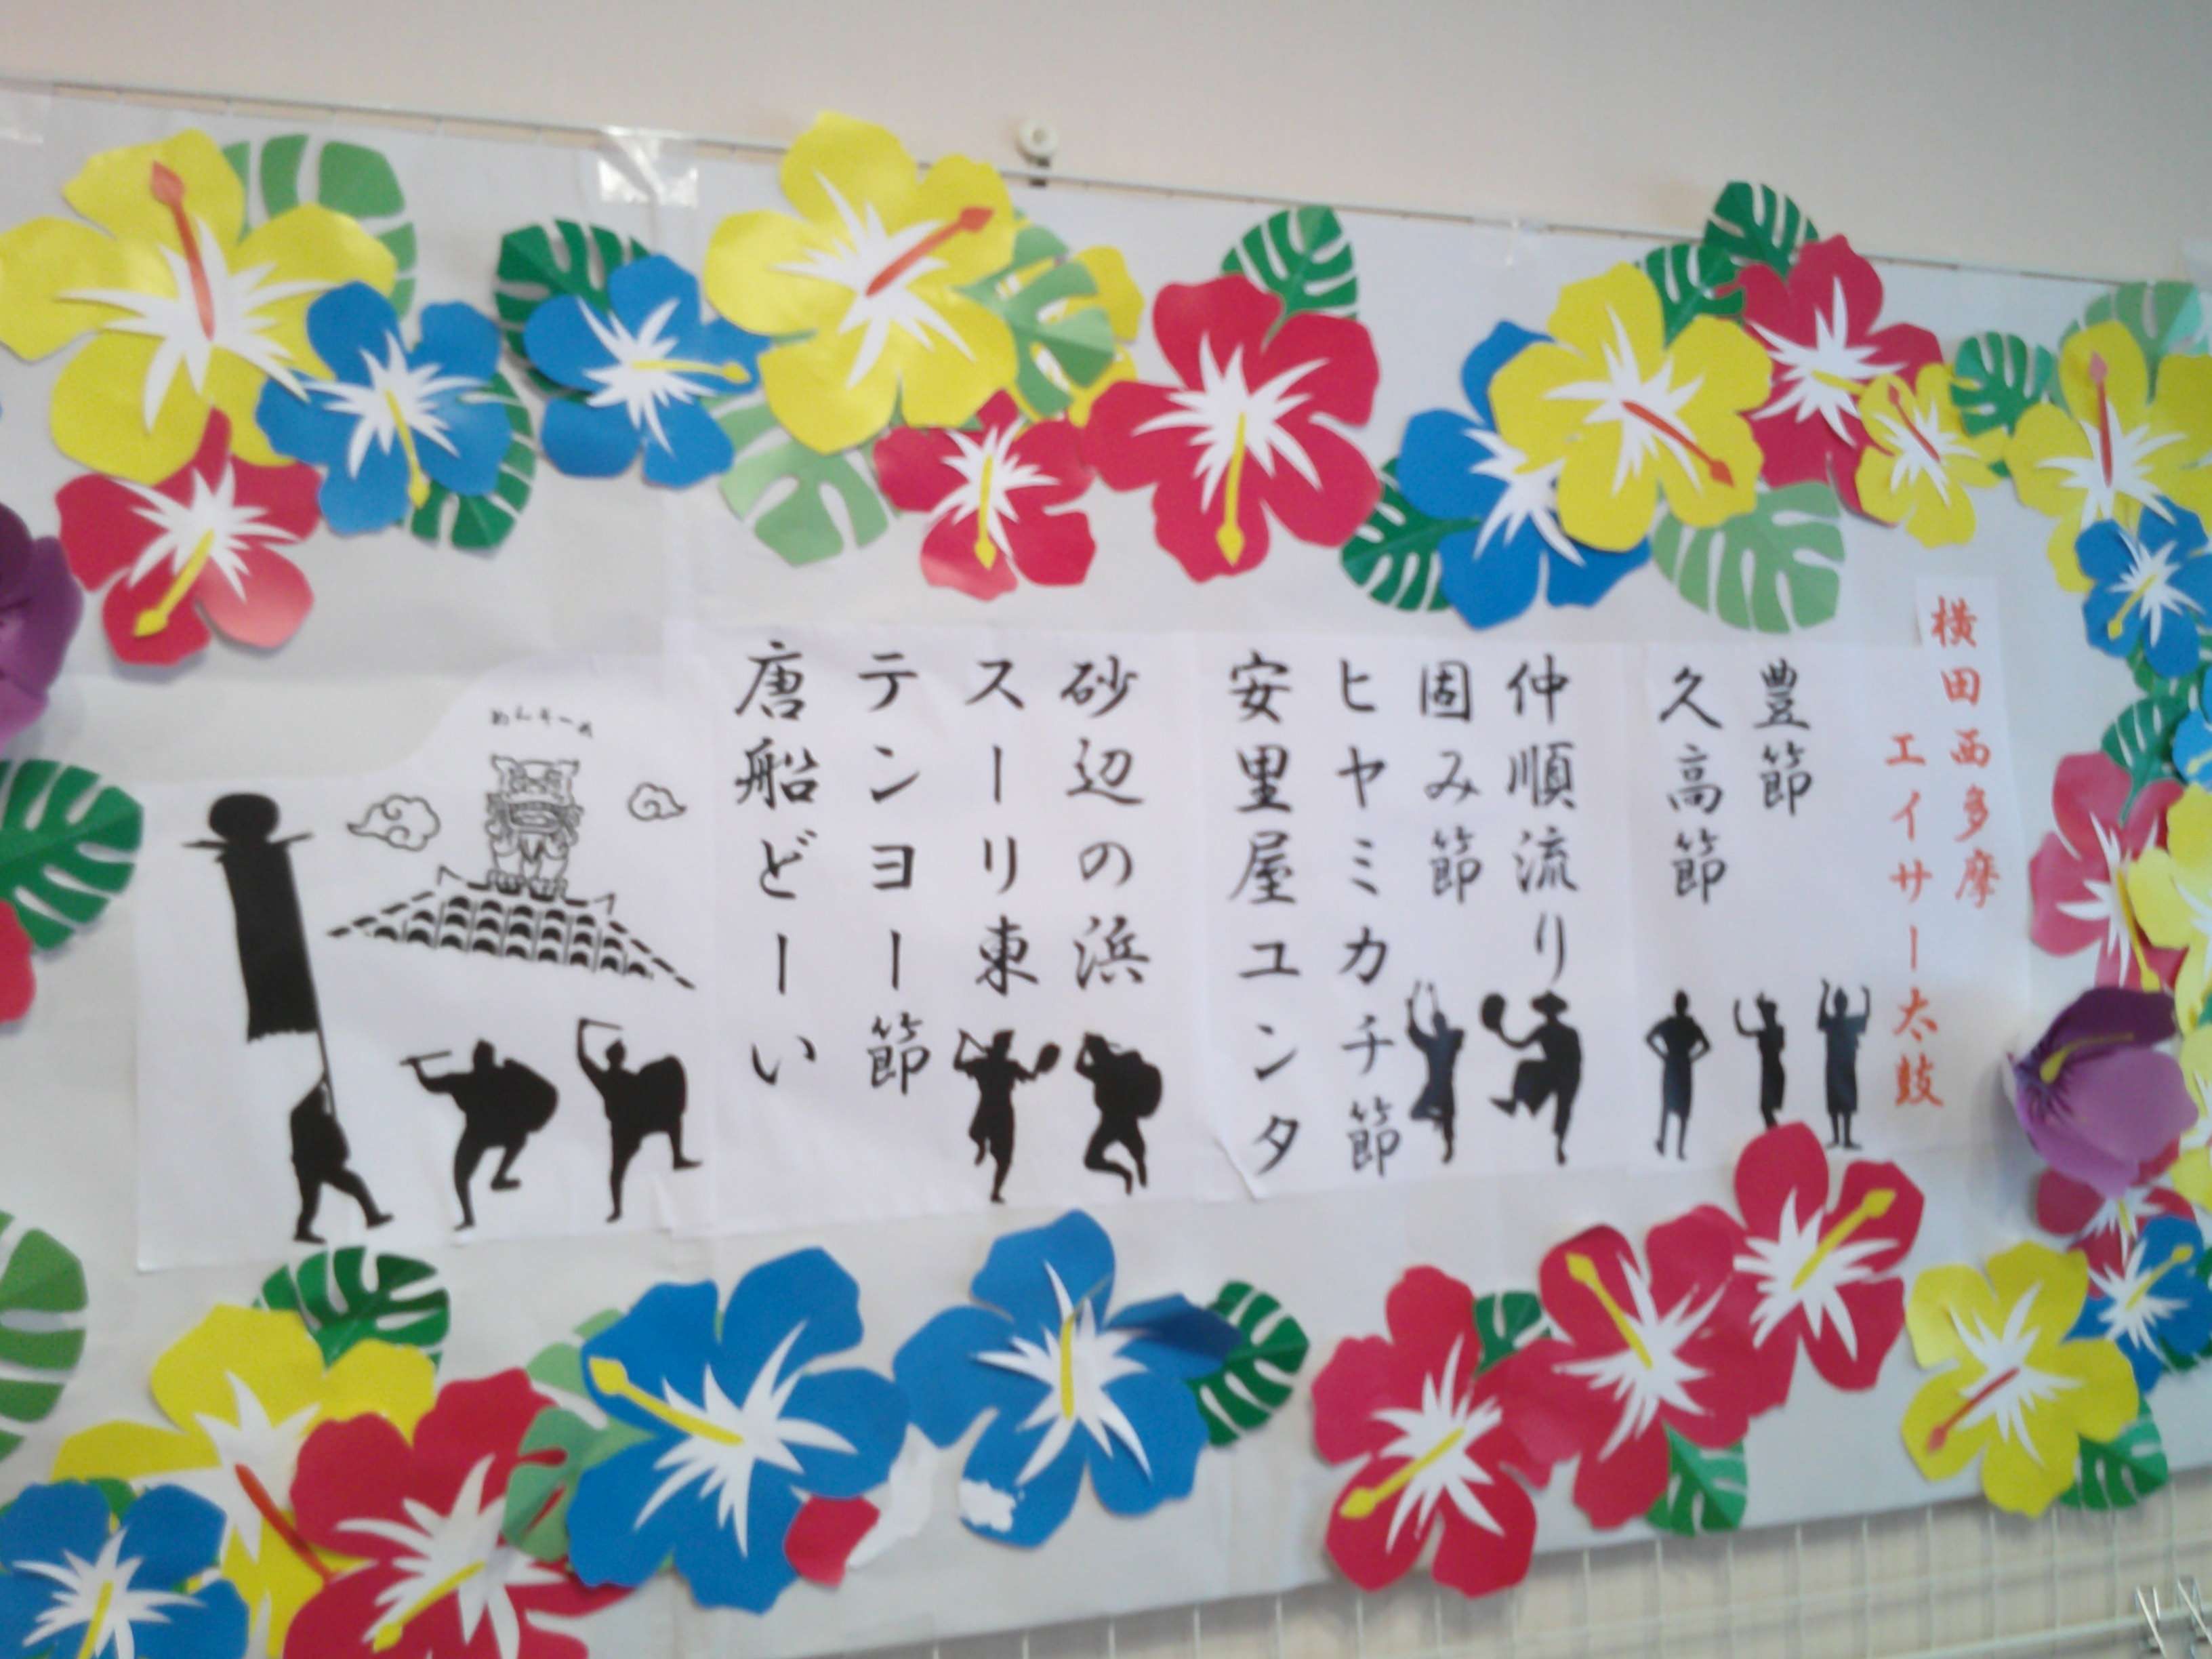 横田西多摩
エイサー太鼓
豊節
久高節
仲順流り
固み節
ヒヤミカチ節
安里屋ユンタ
砂辺の浜
スーリ東
テンヨー節
唐船どーい
めんそーれ